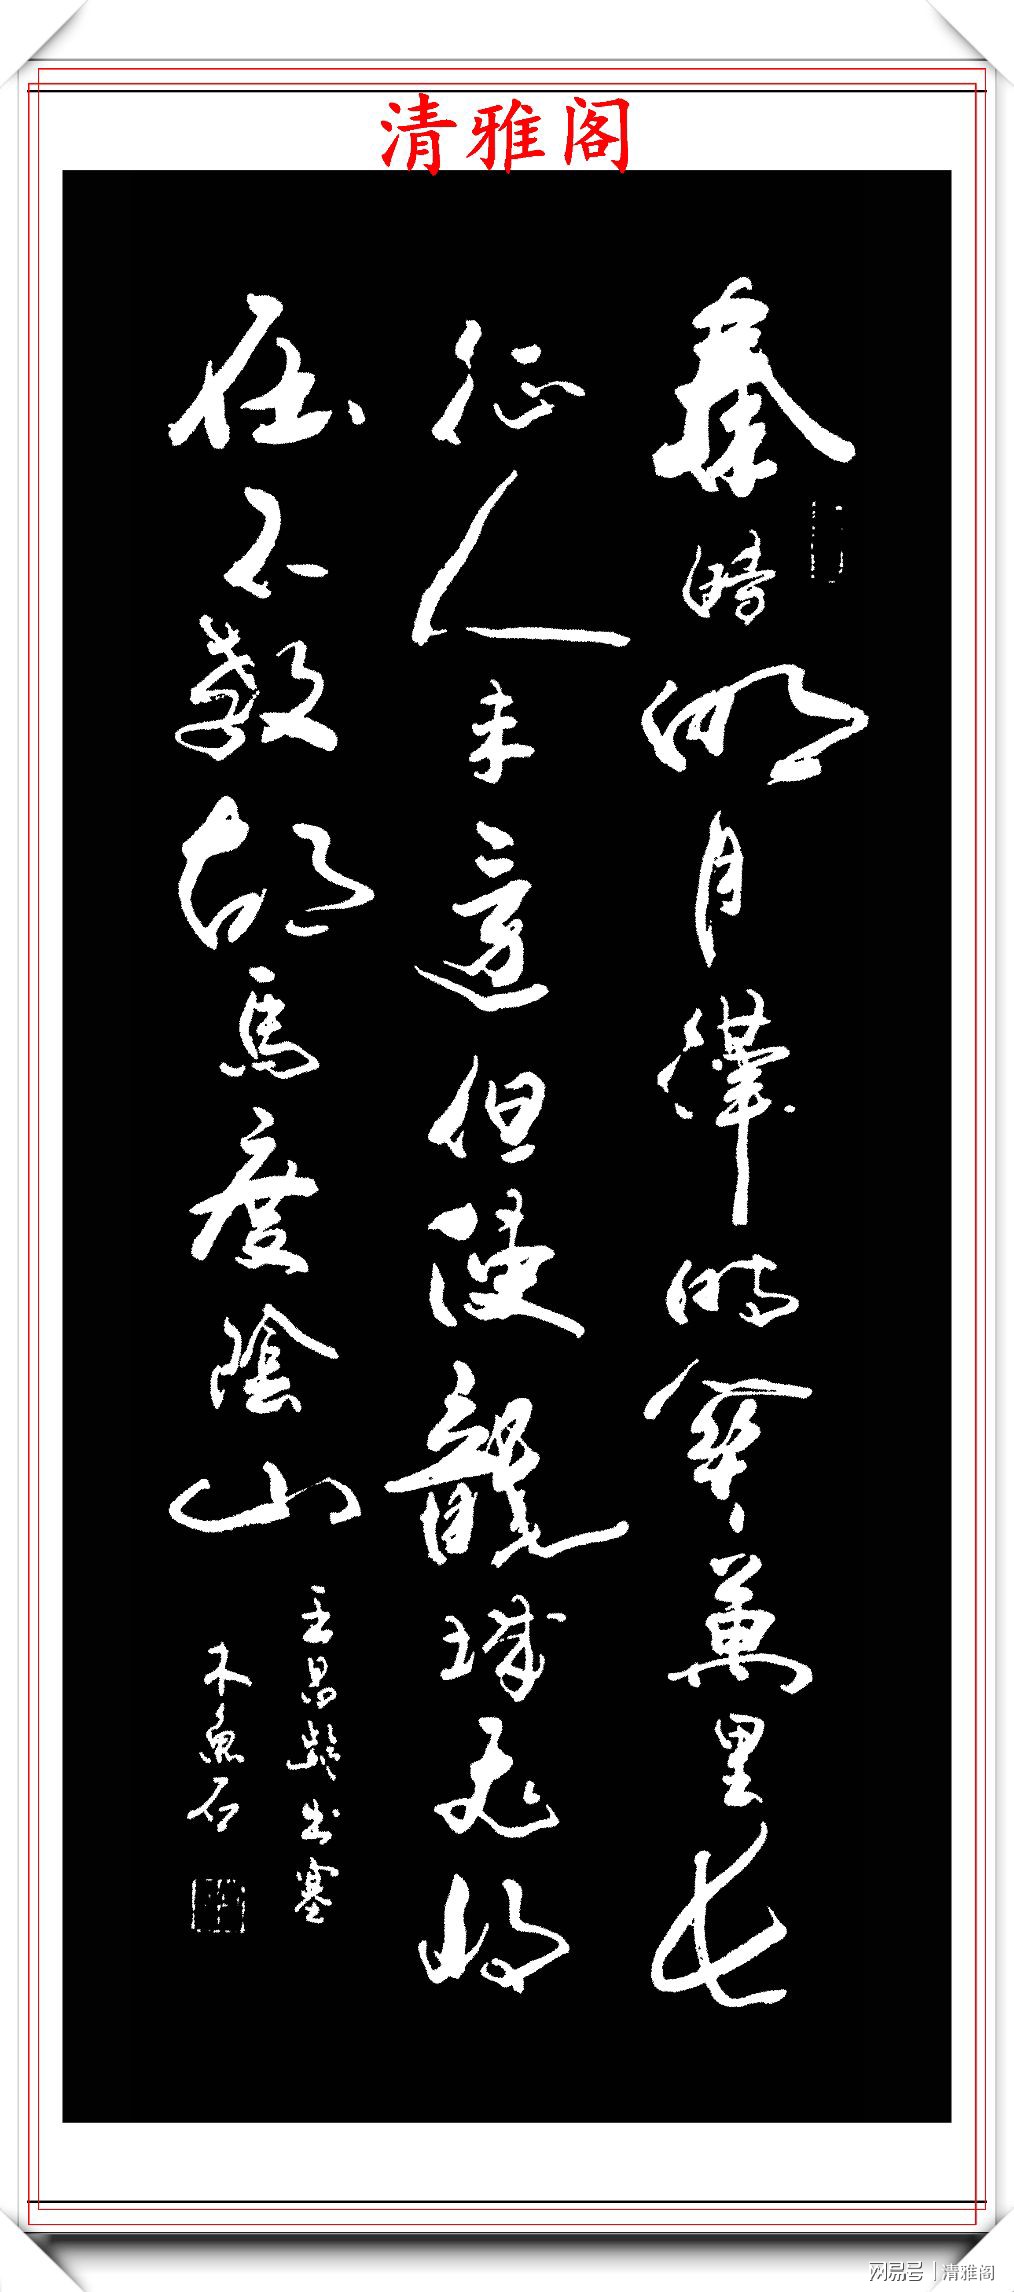 清雅阁
秦時明月漢時関萬里长
征人未還但使龍城飛将
在不教胡馬度陰山
王昌齡出塞
木魚石
网易号 | 清雅阁